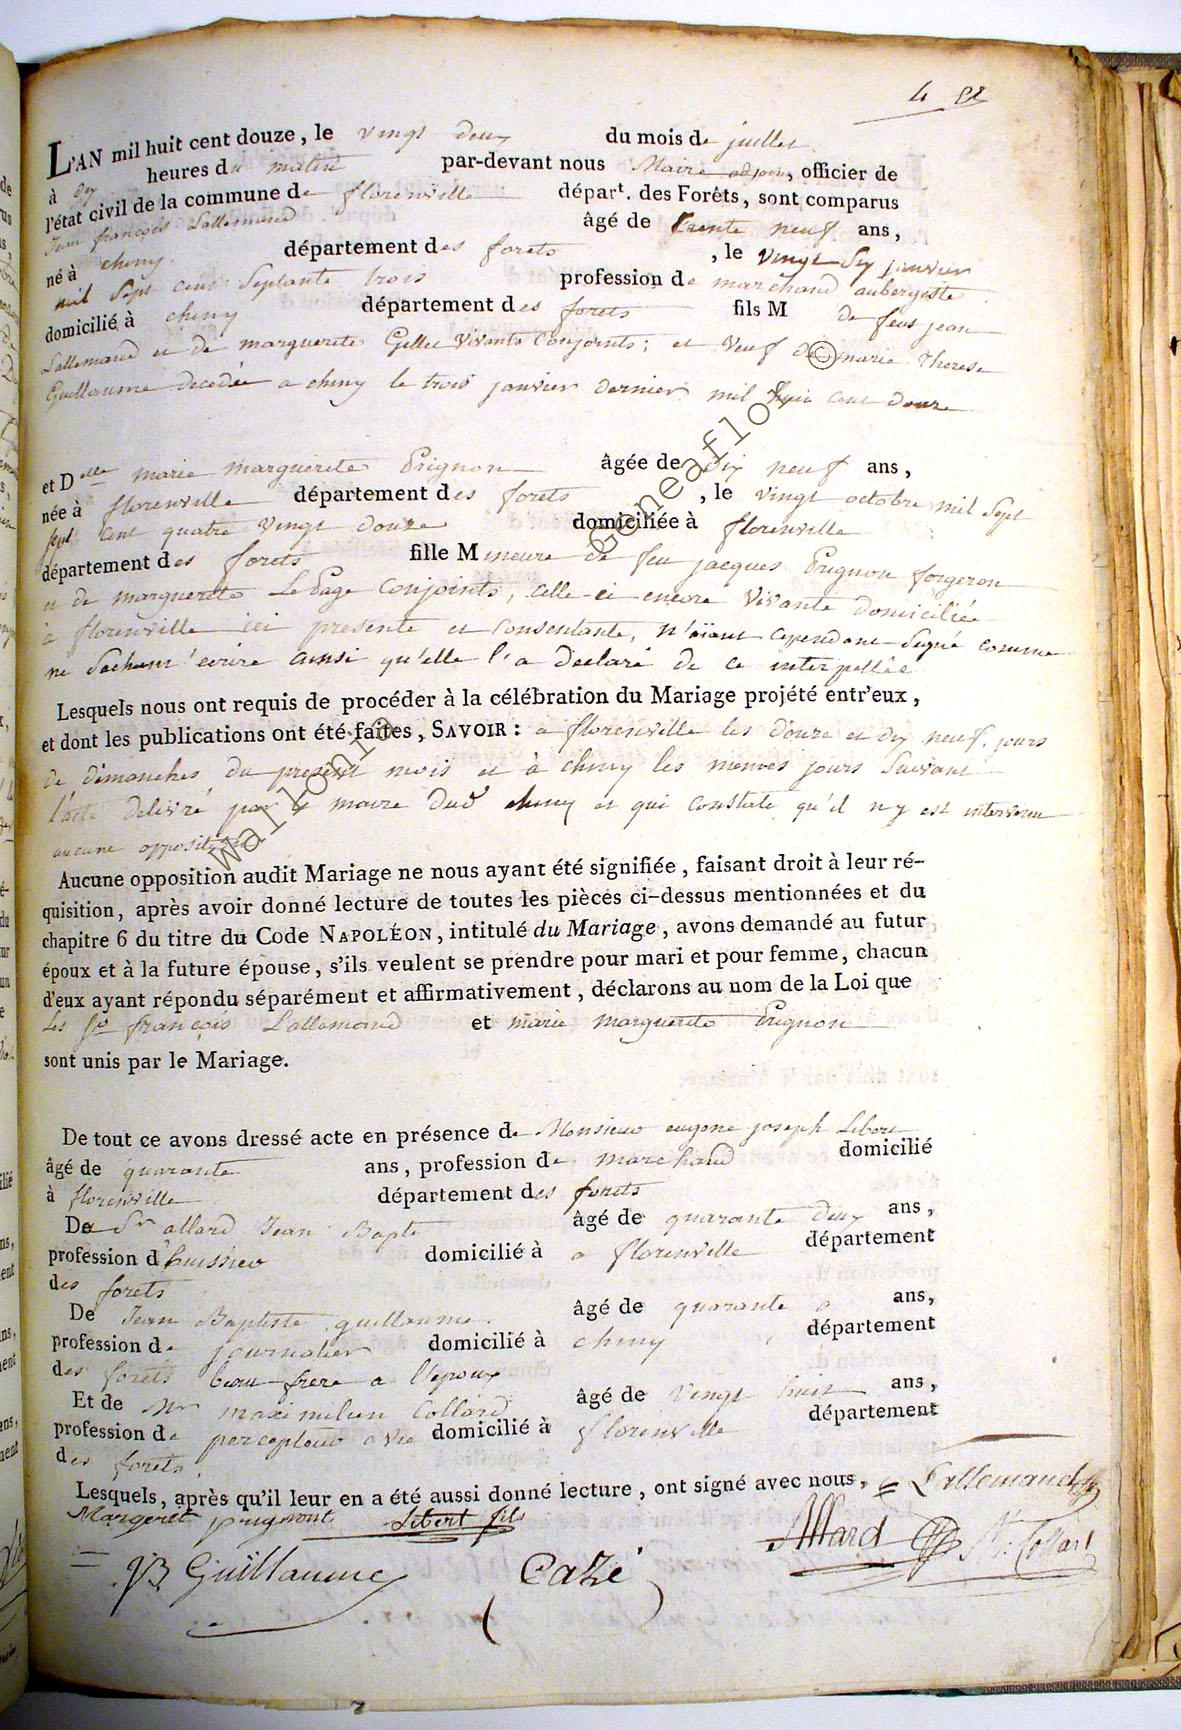 L'AN mil huit cent douze, le vingt deux du mois de juillet
à dix heures du matin par-devant nous Maire adjoint, officier de
l'état civil de la commune de florenville départ. des Forêts, sont comparus
Jean françois Lallemand âgé de trente neuf ans,
né à chiny département des forets, le vingt six janvier
mil sept cent septante trois profession de marchand aubergiste
domicilié à chiny département des forets fils M de feus jean
Lallemand et de marguerite Gillet vivants conjoints; et veuf de marie Therese
Guillaume decedée a chiny le trois janvier dernier mil huit cent douze
et Delle marie marguerite Prignon âgée de dix neuf ans,
née à florenville département des forets, le vingt octobre mil sept
sept cent quatre vingt douze domiciliée à florenville
département des forets fille Mineure de feu jacques Prignon forgeron
et de marguerite LePage conjoints, celle-ci encore vivante domiciliée
à florenville ici presente et consentante, n'aïant cependant signé comme
ne sachant écrire ainsi qu'elle l'a declaré de ce interpellée
Lesquels nous ont requis de procéder à la célébration du Mariage projété entr'eux,
et dont les publications ont été faites, SAVOIR : a florenville les douze et dix neuf jours
de dimanches du present mois et à chiny les memes jours suivant
l'acte delivré par le maire dud chiny et qui constate qu'il n'y est intervenu
aucune opposition
Aucune opposition audit Mariage ne nous ayant été signifiée, faisant droit à leur ré-
quisition, après avoir donné lecture de toutes les pièces ci-dessus mentionnées et du
chapitre 6 du titre du Code NAPOLÉON, intitulé du Mariage, avons demandé au futur
époux et à la future épouse, s'ils veulent se prendre pour mari et pour femme, chacun
d'eux ayant répondu séparément et affirmativement, déclarons au nom de la Loi que
les Sr françois Lallemand et marie marguerite Prignon
sont unis par le Mariage.
De tout ce avons dressé acte en présence de Monsieur eugene joseph Libert
âgé de quarante ans, profession de marchand domicilié
à florenville département des forets
De Sr allard Jean Bapte âgé de quarante deux ans,
profession d'huissier domicilié à a florenville département
des forets
De Jean Baptiste guillaume âgé de quarante ans,
profession de journalier domicilié à chiny département
des forets beau-frere a l'epoux
Et de Mr maximilien Collard âgé de vingt huit ans,
profession de percepteur domicilié à florenville département
des forets.
Lesquels, après qu'il leur en a été aussi donné lecture, ont signé avec nous, Lallemand
Margeret prignont Libert fils Allard Collard
JB Guillaume Cazé
Geneaflor Wallonie ©